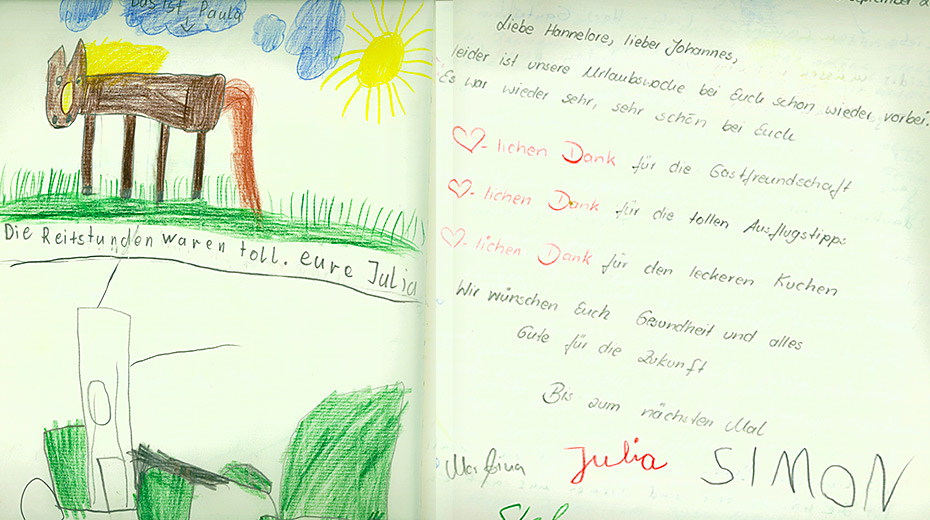 Das ist Paula
Die Reitstunden waren toll. eure Julia
September
Liebe Hannelore, lieber Johannes,
leider ist unsere Urlaubswoche bei Euch schon wieder vorbei.
Es war wieder sehr, sehr schön bei Euch
♡-lichen Dank für die Gastfreundschaft
♡-lichen Dank für die tollen Ausflugstipps
♡-lichen Dank für den leckeren Kuchen
Wir wünschen Euch Gesundheit und alles
Gute für die Zukunft
Bis zum nächsten Mal
Julia SIMON